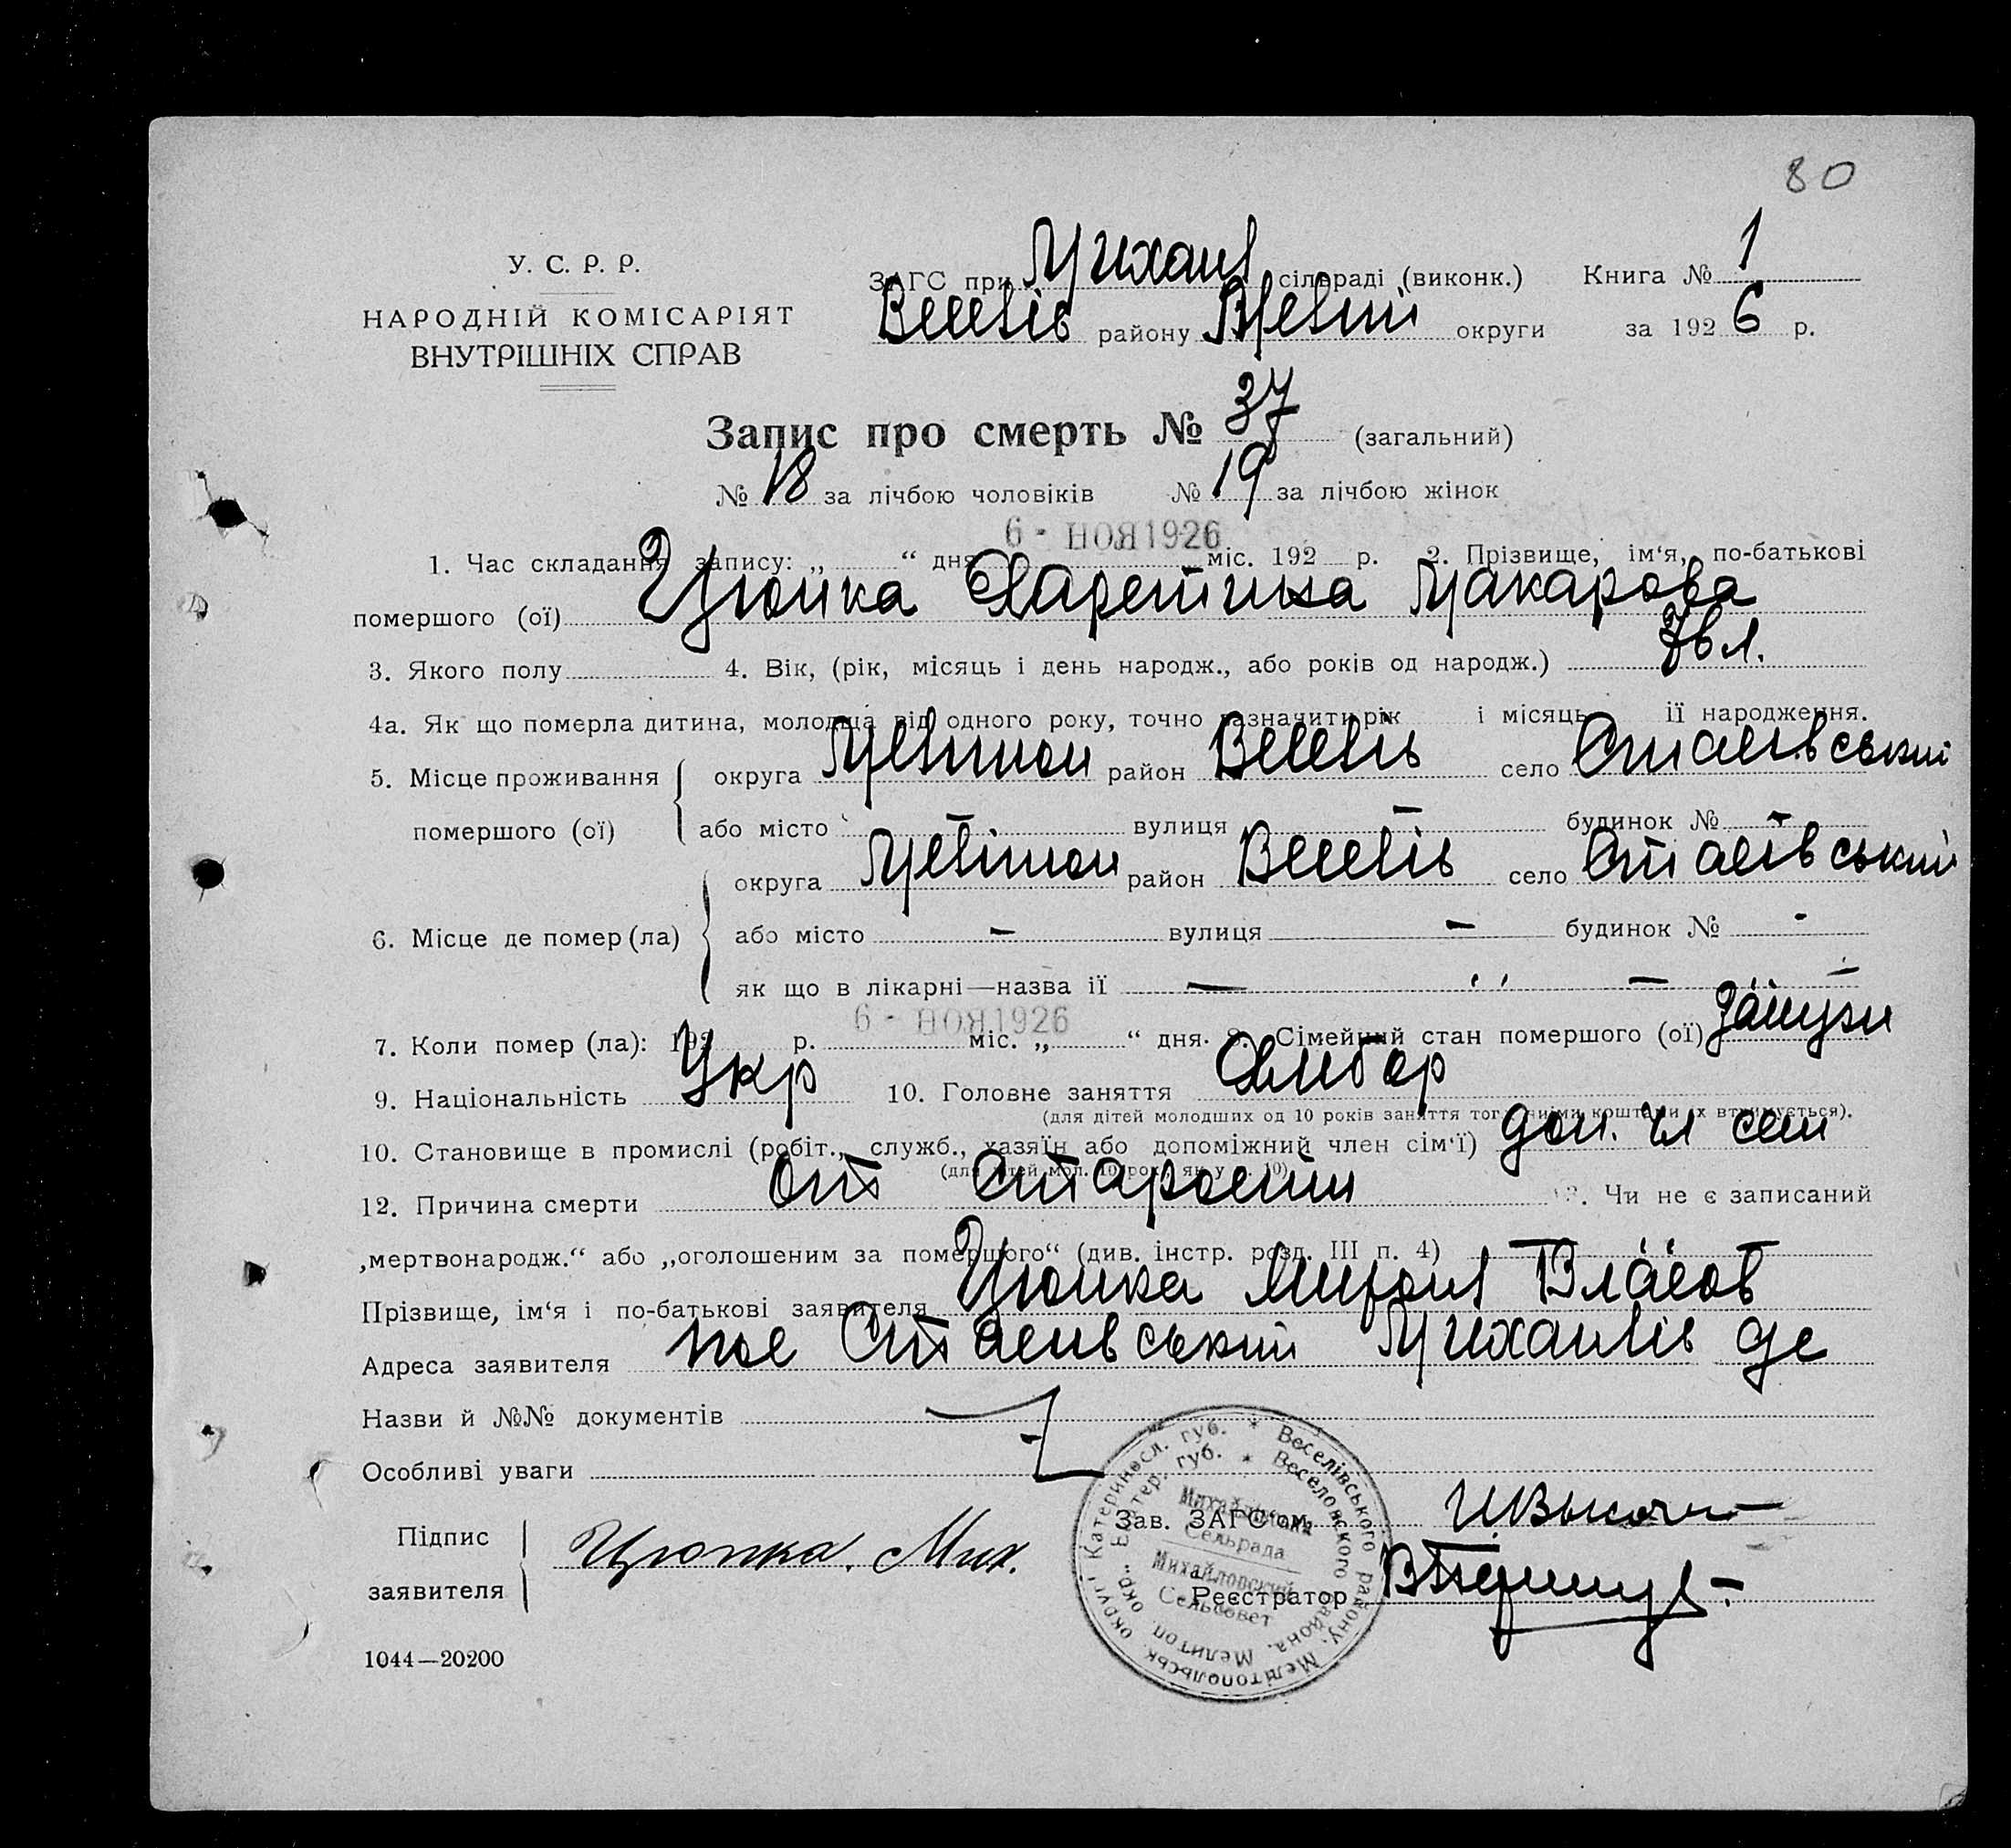 80
У. С. Р. Р.
НАРОДНІЙ КОМІСАРІЯТ
ВНУТРІШНІХ СПРАВ
ЗАГС при Михайл сільраді (виконк.) Книга № 1
Веселів району Мелітоп округи за 1926 р.
Запис про смерть № 37 (загальний)
№ 18 за лічбою чоловіків № 19 за лічбою жінок
6 - НОЯ 1926
1. Час складання запису: „ “ дня міс. 192 р. 2. Прізвище, ім‘я, по-батькові
помершого (ої) Цюпка Харетина Макарова
3. Якого полу 4. Вік, (рік, місяць і день народж., або років од народж.) 76 л.
4а. Як що померла дитина, молодша від одного року, точно зазначити рік і місяць її народження.
5. Місце проживання помершого (ої) округа Мелітоп район Веселів село
або місто — вулиця — будинок № -
6. Місце де помер (ла) округа Мелітоп район Веселів село
або місто — вулиця — будинок № -
як що в лікарні—назва її — „ — —
6 - НОЯ 1926
7. Коли помер (ла): 192 р. міс. „ “ дня. 8. Сімейний стан помершого (ої) Замужн
9. Національність Укр 10. Головне заняття Хлибор
(для дітей молодших од 10 років заняття того, чиїми коштами їх втримується).
10. Становище в промислі (робіт., служб., хазяїн або допоміжний член сім‘ї) доп. чл сем
(для дітей мол. 10 рок. як у п. 10)
12. Причина смерти от старости 13. Чи не є записаний
„мертвонародж.“ або „оголошеним за помершого“ (див. інстр. розд. III п. 4) — „ —
Прізвище, ім‘я і по-батькові заявителя Цюпка Власов
Адреса заявителя пос
Назви й №№ документів
Особливі уваги
Підпис заявителя Цюпка. Мих.
Зав. ЗАГС‘ом
Реєстратор
Катериносл. губ. * Веселівського району, Мелітопольськ. округ
Екатер. губ. * Веселовского района, Мелитоп. окр.
Михайлівська
Сельрада
Михайловский
Сельсовет
1044—20200